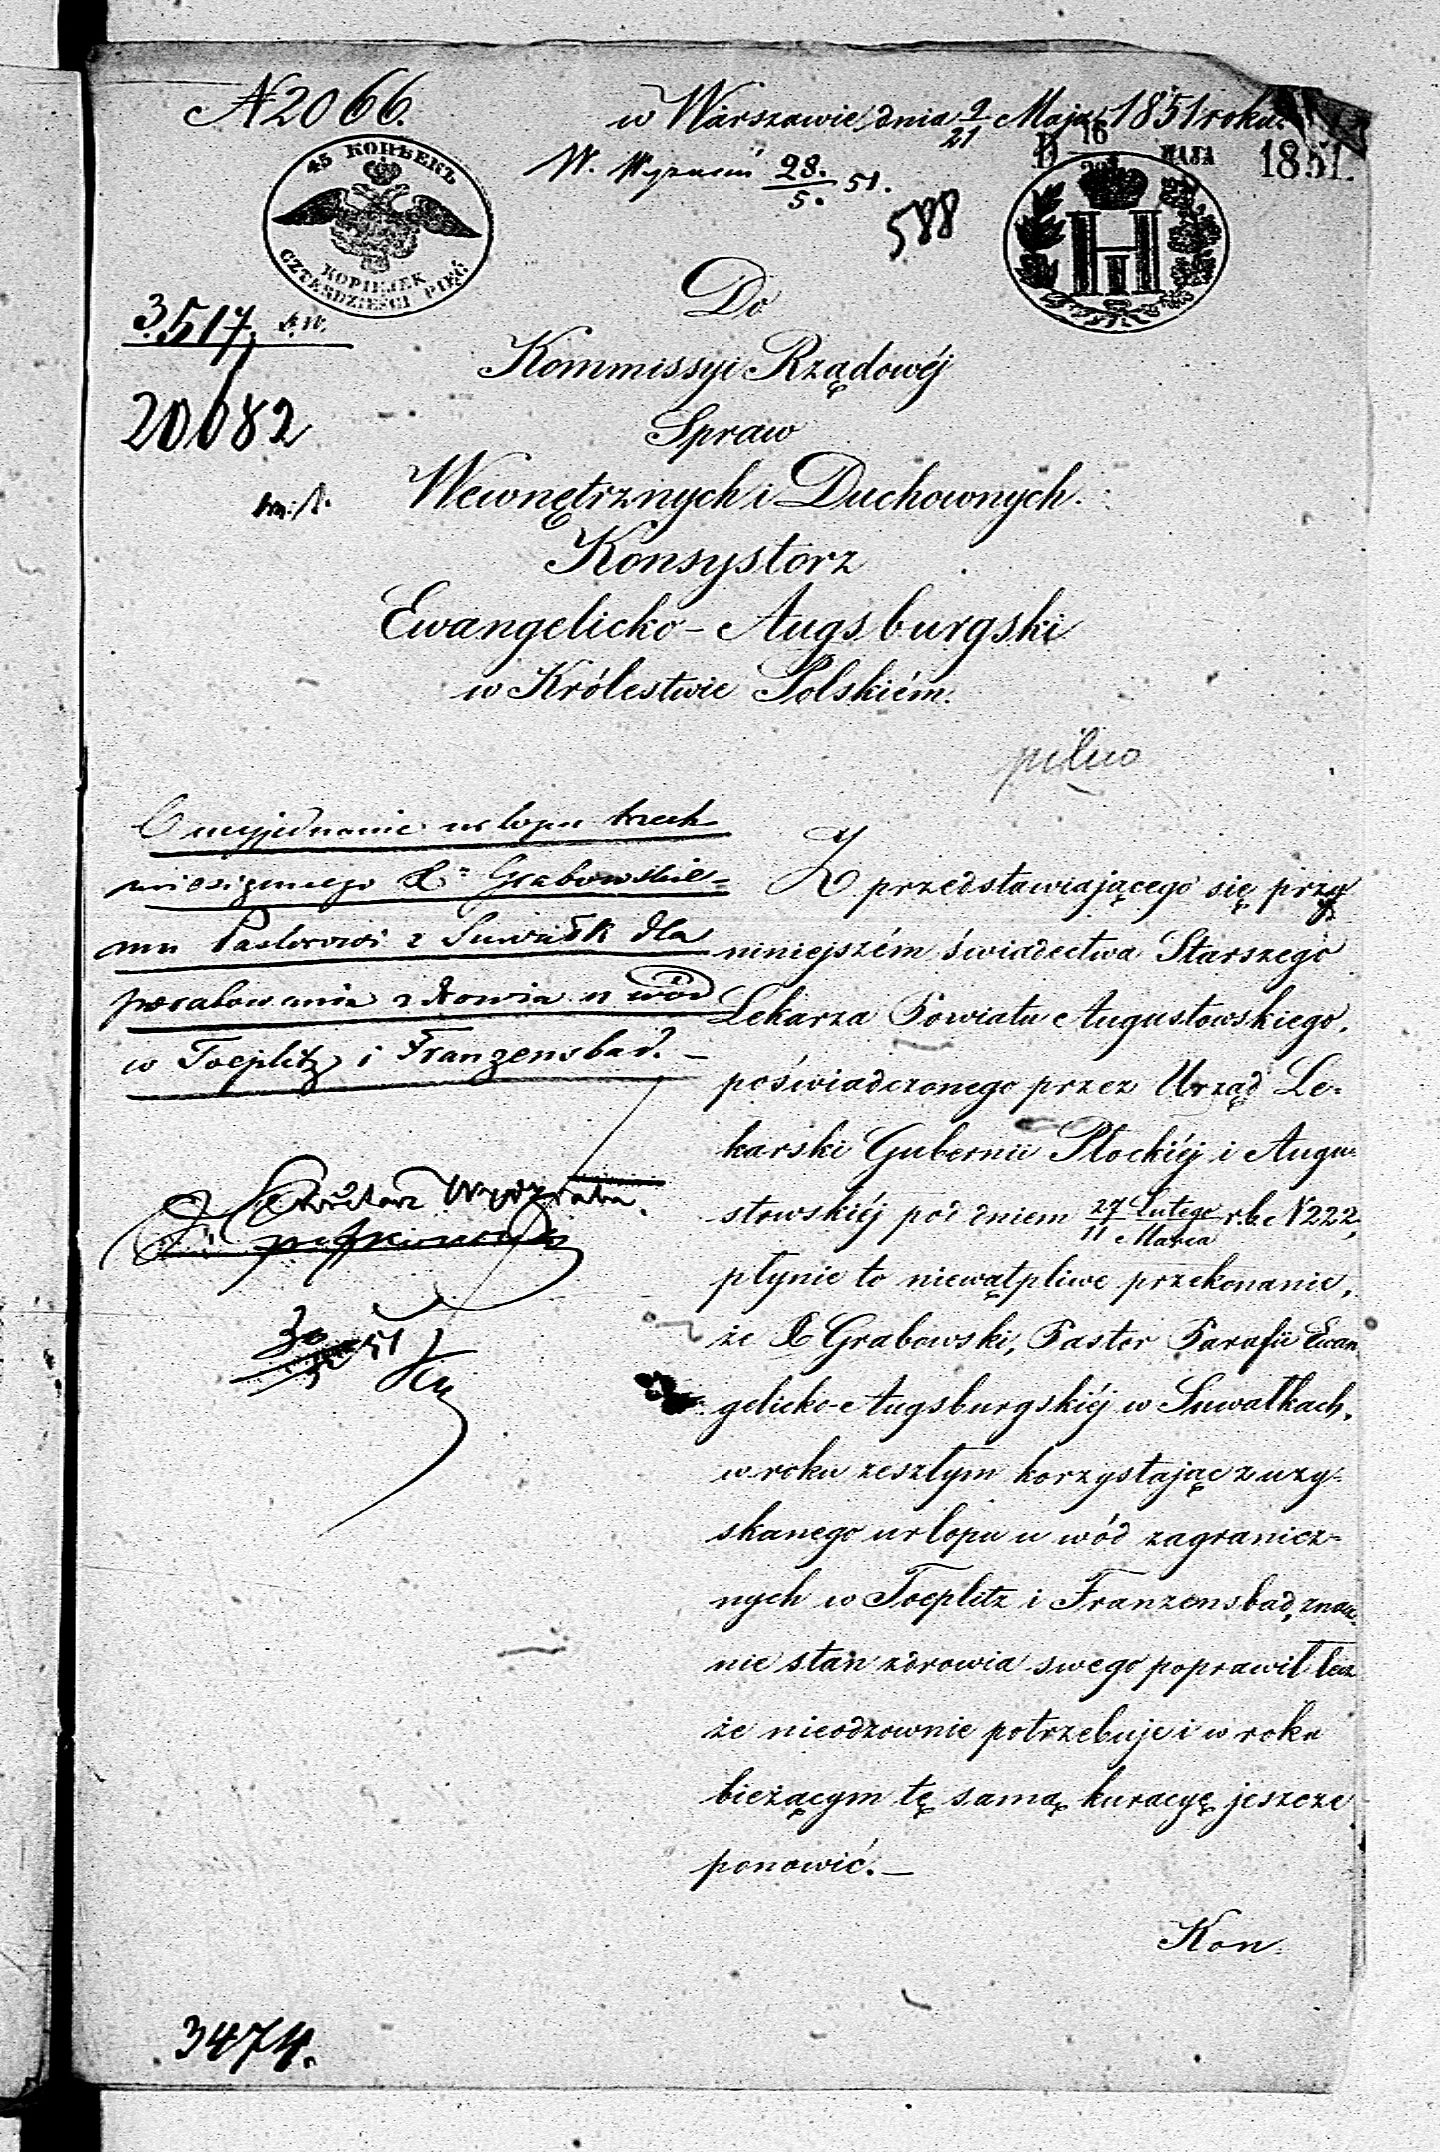 N 2066.
w Warszawie dnia 9/21 Maja 1851 roku.
W. 28./5. 51.
16
МАЯ
1851.
45 КОПѢЕКЪ
KOPIEJEK
CZTERDZIEŚCI PIĘĆ
588
Do
3517.
Kommissyi Rządowéj
20082
Spraw
Wewnętrznych i Duchownych.
Konsystorz
Ewangelicko-Augsburgski
w Królestwie Polskiém.
pilno
O wyjednanie urlopu trzech
miesięcznego X. Grabowskie-
mu Pastorowi z Suwałk dla
poratowania zdrowia u wód
w Toeplitz i Franzensbad. –
Sekretarz Wydziału.
30/5 51
Z przedstawiającego się przy
niniejszém świadectwa Starszego
Lekarza Powiatu Augustowskiego,
poświadczonego przez Urząd Le-
karski Gubernii Płockiéj i Augu-
stowskiéj pod dniem 27 Lutego/11 Marca r.b. N 222,
płynie to niewątpliwe przekonanie,
że X Grabowski, Pastor Parafii Ewan
gelicko-Augsburgskiéj w Suwałkach,
w roku zeszłym korzystając z uzy-
skanego urlopu u wód zagranicz-
nych w Toeplitz i Franzensbad, znacz-
nie stan zdrowia swego poprawił lecz
że nieodzownie potrzebuje i w roku
bieżącym tę samą kuracyę jeszcze
ponowić. –
Kon
3474.